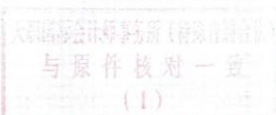 天职国际会计师事务所（特殊普通合伙）
与原件核对一致
（1）